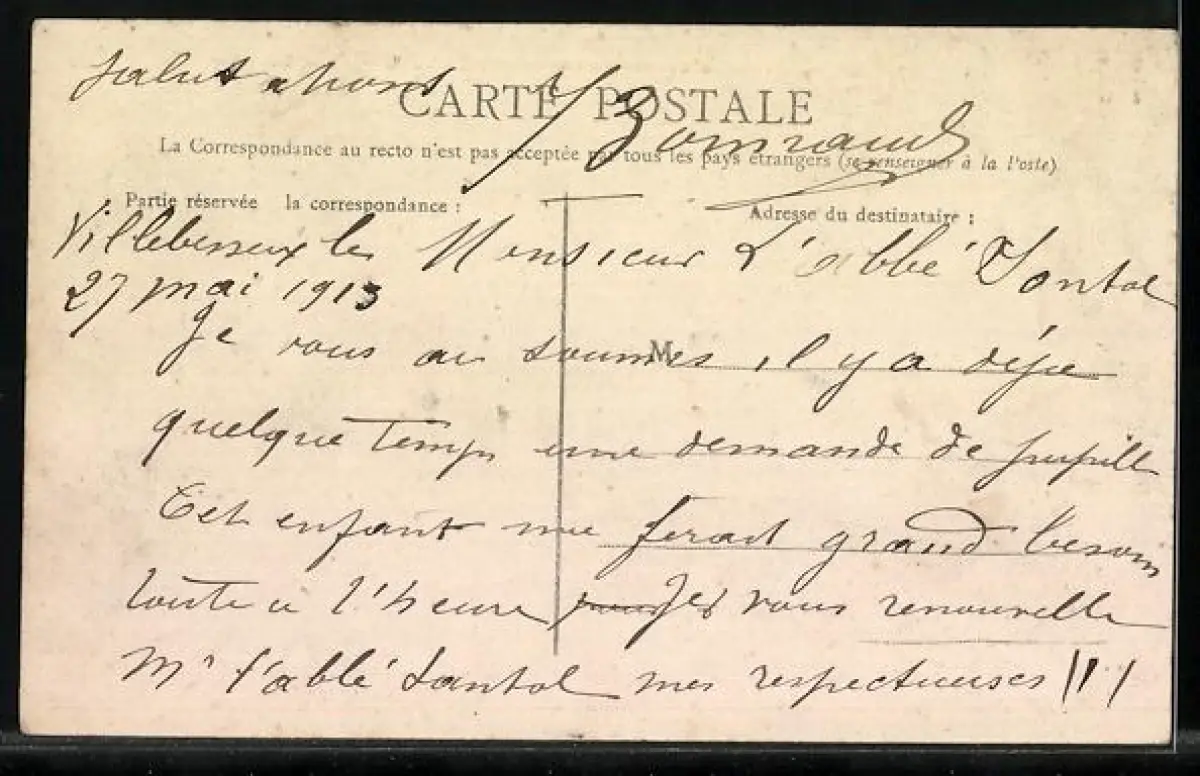 Salut
CARTE POSTALE
La Correspondance au recto n'est pas acceptée par tous les pays étrangers (se renseigner à la Poste)
Partie réservée la correspondance :
Adresse du destinataire :
le Monsieur L'abbé Santol
27 mai 1913
M
Je vous ai soumis, il y a déja
quelque Temps une demande de pupille
Cet enfant me ferait grand besoin
toute a l'heure Je vous renouvelle
Mr l'abbé Santol mes respectueuses